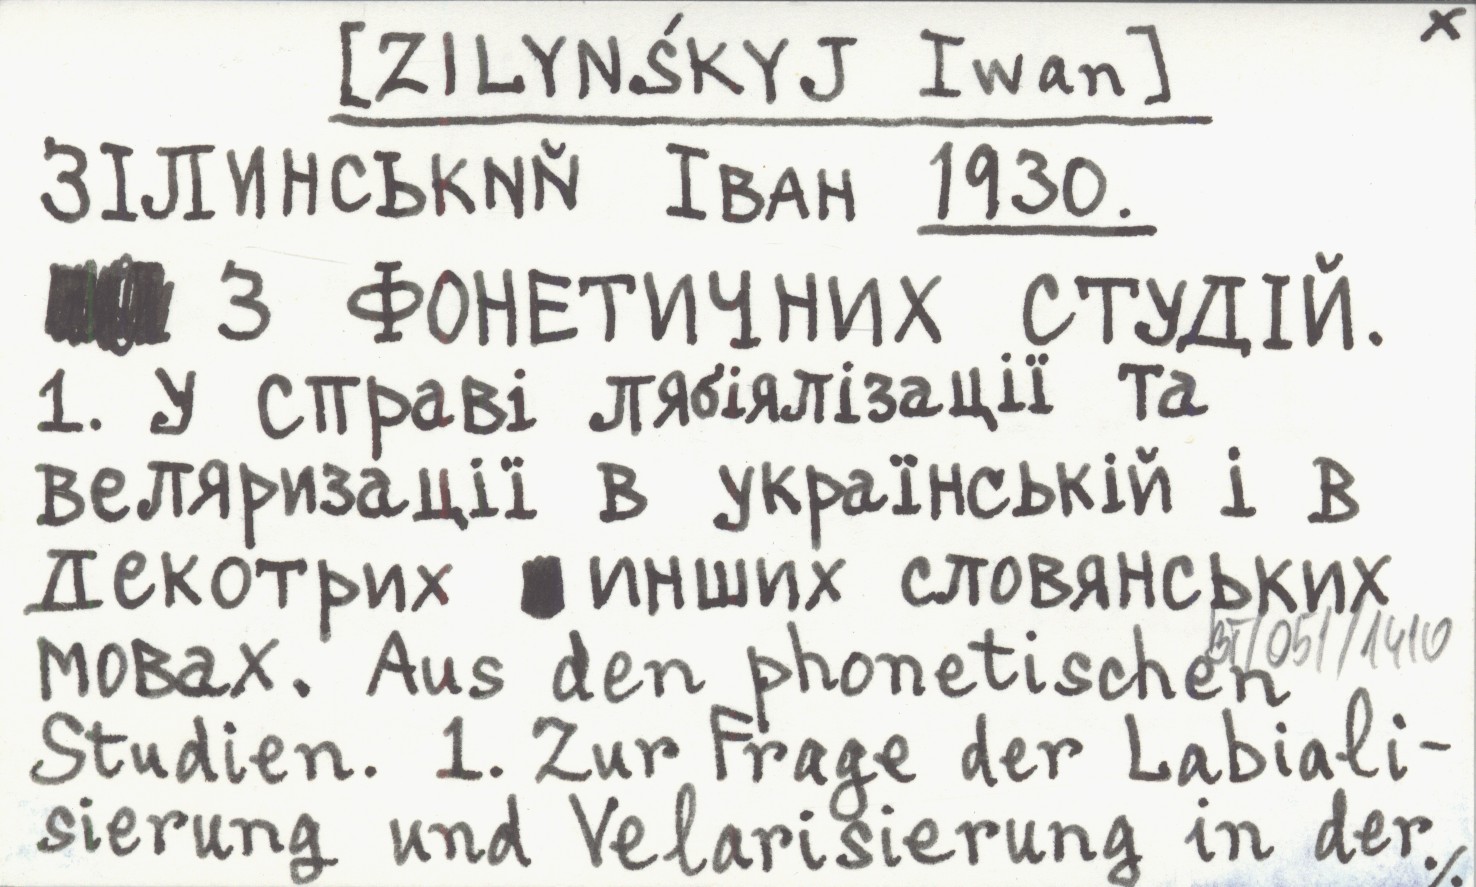 x
[ZILYNŚKYJ Iwan]
ЗІЛИНСЬКИЙ Іван 1930.
З ФОНЕТИЧНИХ СТУДІЙ.
1. У справі лябіялізації та
веляризації в українській і в
декотрих инших словянських
мовах. Aus den phonetischen
Studien. 1. Zur Frage der Labiali-
sierung und Velarisierung in der
./.